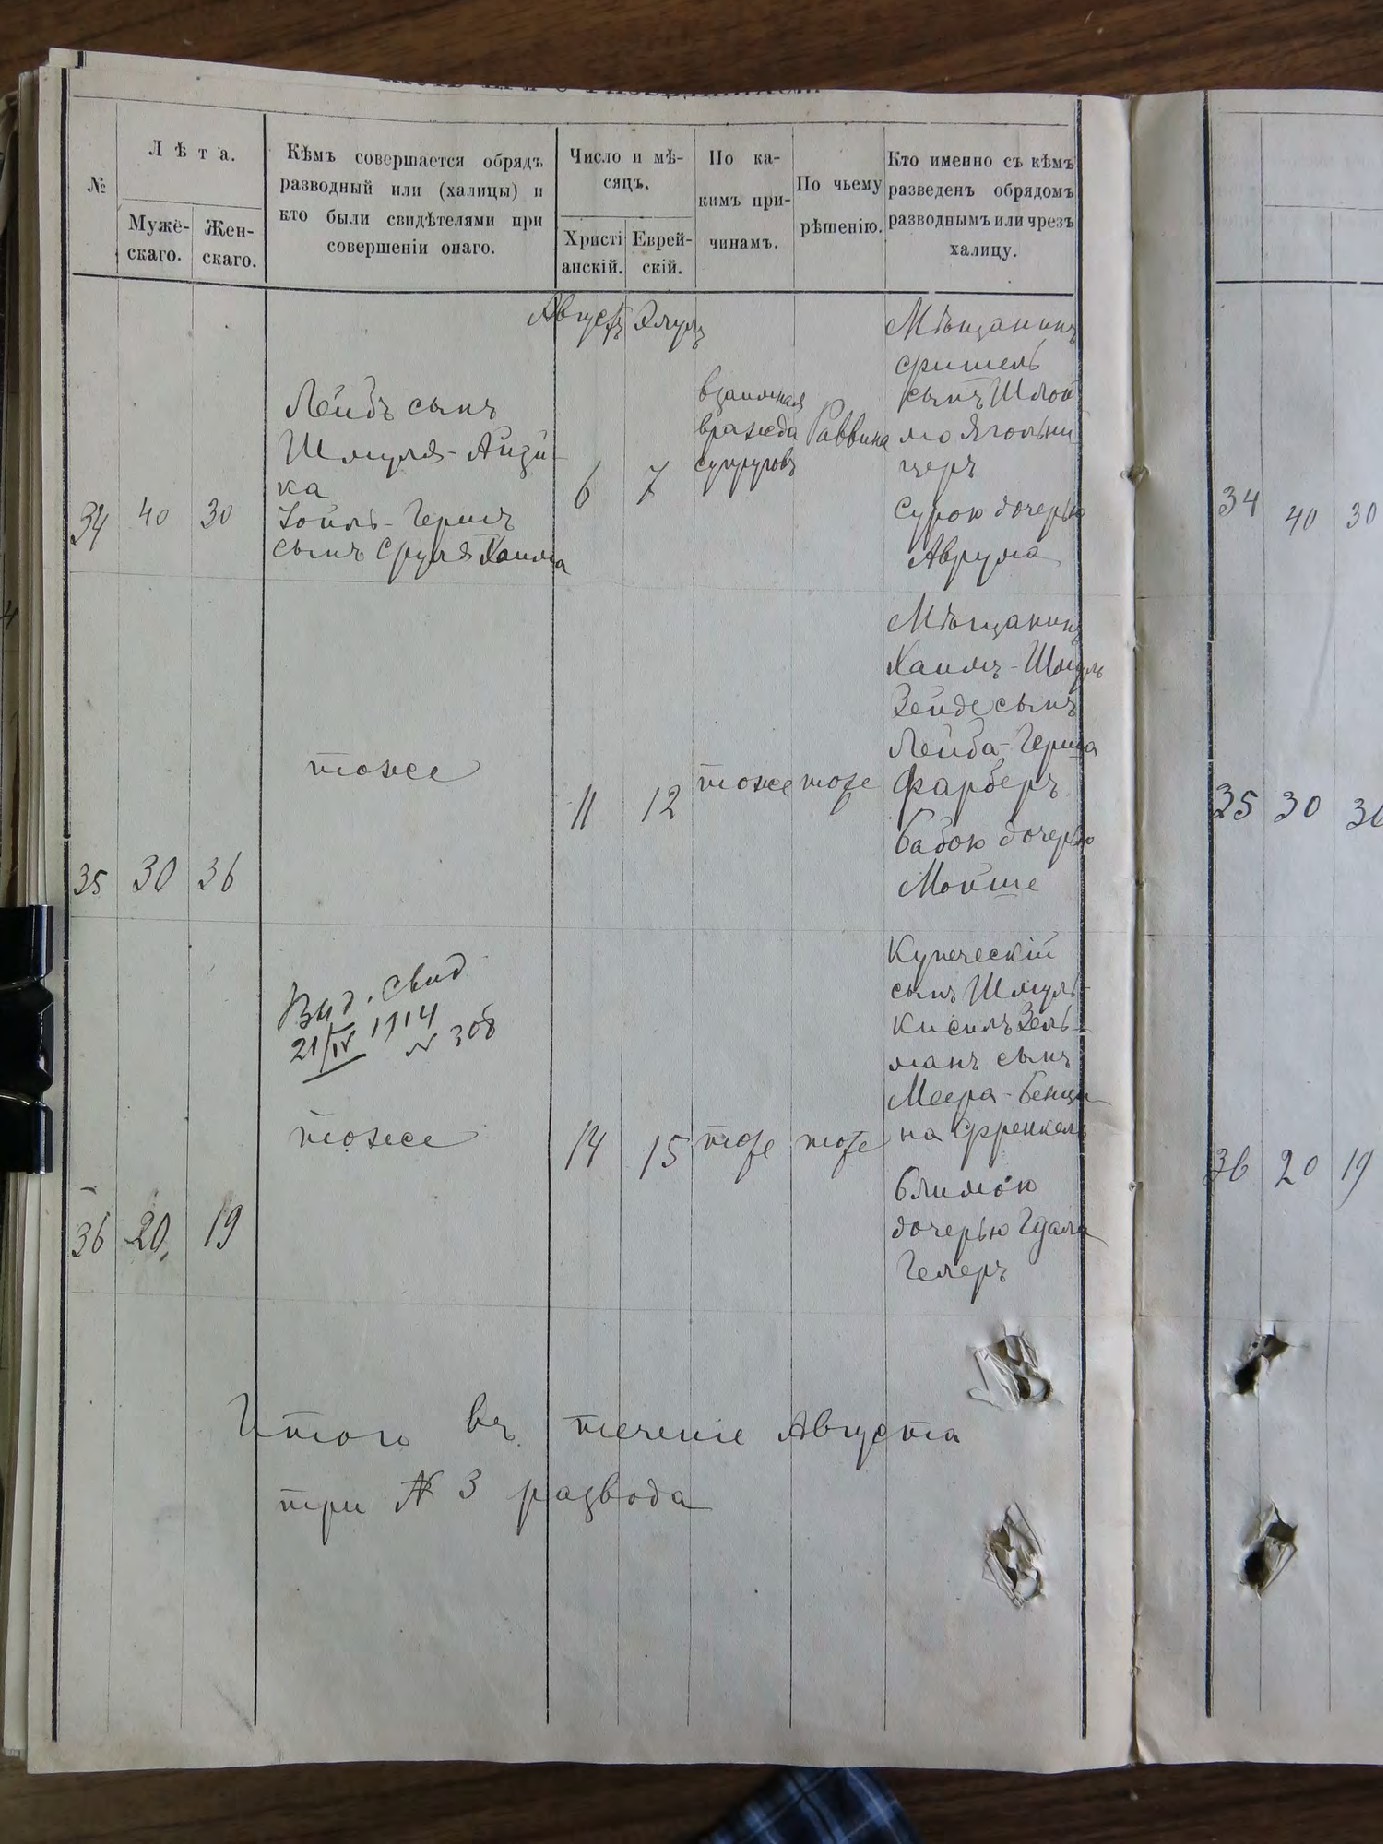 №
Лѣта.
Мужескаго.
Женскаго.
Кѣмъ совершается обрядъ
разводный или (халицы) и
кто были свидѣтелями при
совершеніи онаго.
Число и мѣ-
сяцъ.
Христі
анскій.
Еврей-
скій.
По ка-
кимъ при-
чинамъ.
По чьему
рѣшенію.
Кто именно съ кѣмъ
разведенъ обрядомъ
разводнымъ или чрезъ
халицу.
Августъ Элулъ
34 40 30
Лейбъ сынъ
Шмуля-
ка
Сойль-Гершъ
сынъ Сруля Хаима
6 7
взаимная
вражда
супруговъ
Раввина
Мѣщанинъ
Фишель
сынъ Шлой
мо
церъ
Сурою дочерью
Аврума
35 30 36
тоже
11 12
тоже тоже
Мѣщанинъ
Хаимъ-Шмуль
Зейде сынъ
Лейба-Герша
Фарберъ
Бабою дочерью
Мойше
36 20 19
Выд. Свид
21/IV 1914
№ 308
тоже
14 15
тоже тоже
Купеческій
сынъ Шмуль-
Кисиль Зель-
манъ сынъ
Меера-Бенці
на Френкель
Блимою
дочерью Гдаля
Гелеръ
Итого въ теченіе Августа
три № 3 развода
34 40 30
35 30 36
36 20 19